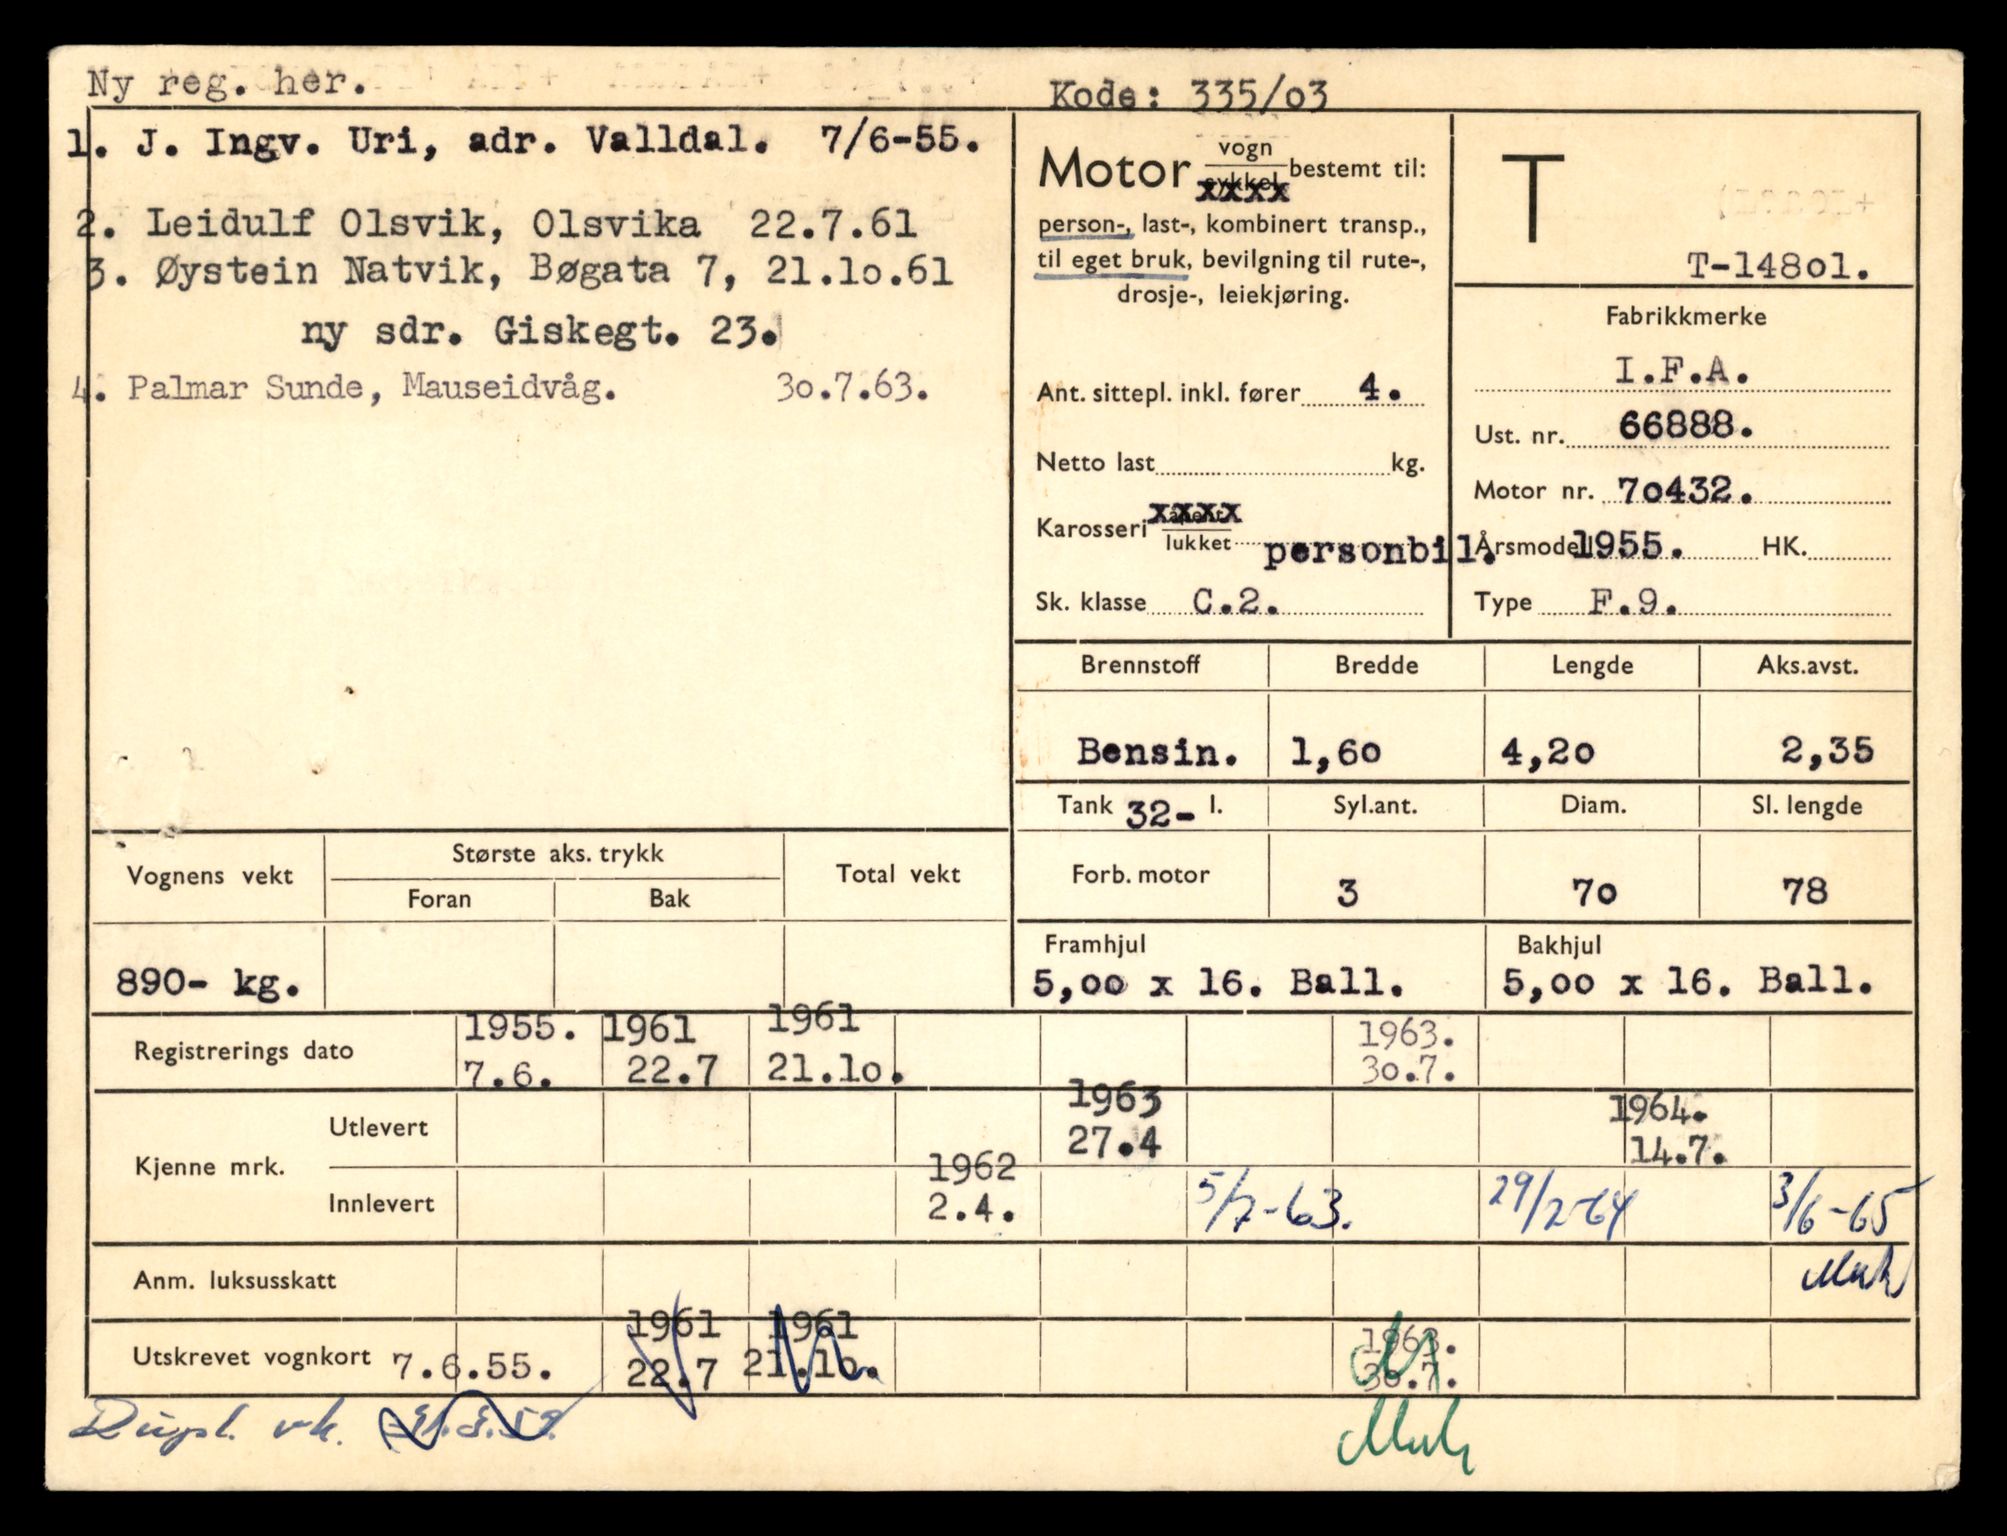 Ny reg. her.
Kode: 335/o3
1. J. Ingv. Uri, adr. Valldal. 7/6-55.
2. Leidulf Olsvik, Olsvika 22.7.61
3. Øystein Natvik, Bøgata 7, 21.lo.61
ny sdr. Giskegt. 23.
4. Palmar Sunde, Mauseidvåg. 3o.7.63.
Motor vogn sykkel xxxx bestemt til:
person-, last-, kombinert transp.,
til eget bruk, bevilgning til rute-,
drosje-, leiekjøring.
Ant. sittepl. inkl. fører 4.
Netto last kg.
Karosseri åpent xxxx lukket personbil.
Sk. klasse C.2.
T
T-148o1.
Fabrikkmerke
I.F.A.
Ust. nr. 66888.
Motor nr. 7o432.
Årsmodell 1955. HK.
Type F.9.
Brennstoff Bredde Lengde Aks.avst.
Bensin. 1,6o 4,2o 2,35
Tank 32- l. Syl.ant. Diam. Sl. lengde
Forb. motor 3 7o 78
Framhjul Bakhjul
5,oo x 16. Ball. 5,oo x 16. Ball.
Vognens vekt Største aks. trykk Total vekt
Foran Bak
890- kg.
Registrerings dato 1955. 1961 1961 1963.
7.6. 22.7 21.lo. 3o.7.
Kjenne mrk. Utlevert 1963 1964.
27.4 14.7.
Innlevert 1962 5/7-63. 29/2-64 3/6-65
2.4.
Anm. luksusskatt
Utskrevet vognkort 7.6.55. 1961 1961 1963.
22.7 21.lo. 3o.7.
Dupl. vk.